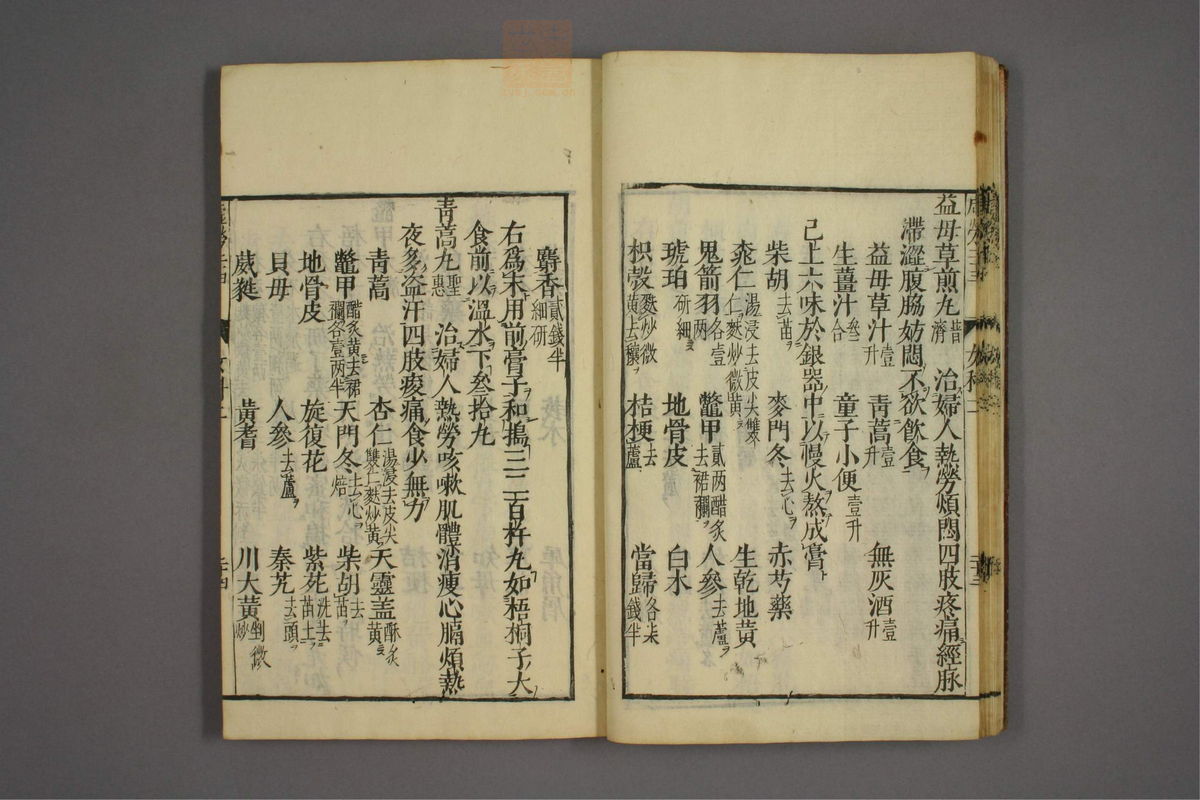 益母草煎丸昔濟 治婦人熱勞煩悶四肢疼痛經脉
滯澀腹脇妨悶不欲飲食
益母草汁壹升 青蒿壹升 無灰酒壹升
生薑汁叁合 童子小便壹升
已上六味於銀器中以慢火熬成膏
柴胡去苗 麥門冬去心 赤芍藥
桃仁湯浸去皮尖雙仁麩炒微黃 生乾地黃
鬼箭羽各壹两 鼈甲貳两醋炙去裙襴 人參去蘆
琥珀研細 地骨皮 白术
枳殼麩炒微黃去穰 桔梗去蘆 當歸各柒錢半
麝香貳錢半細研
右為末用前膏子和搗三二百杵丸如梧桐子大
食前以溫水下叁拾丸
青蒿丸聖惠 治婦人熱勞咳嗽肌體消瘦心膈煩熱
夜多盗汗四肢痠痛食少無力
青蒿 杏仁湯浸去皮尖雙仁麩炒黃 天靈盖酥炙黃
鼈甲醋炙黃去裙襴各壹两半 天門冬去心焙 柴胡去苗
地骨皮 旋復花 紫菀洗去苗土
貝母 人參去蘆 秦艽去頭
葳蕤 黃耆 川大黃剉微炒